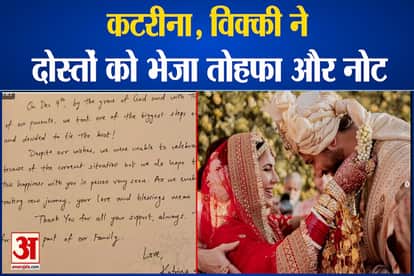 कटरीना, विक्की ने
दोस्तों को भेजा तोहफा और नोट
On Dec 9th, by the grace of God and with
of our parents, we took one of the biggest steps
and decided to tie the knot!
Despite our wishes, we were unable to celebrate
because of the current situation but we do hope to
this happiness with you in person very soon. As we
exciting new journey, your love and blessings mean
Thank You for all your support, always.
for part of our Family.
Love,
Katrina
अ
amarujala.com